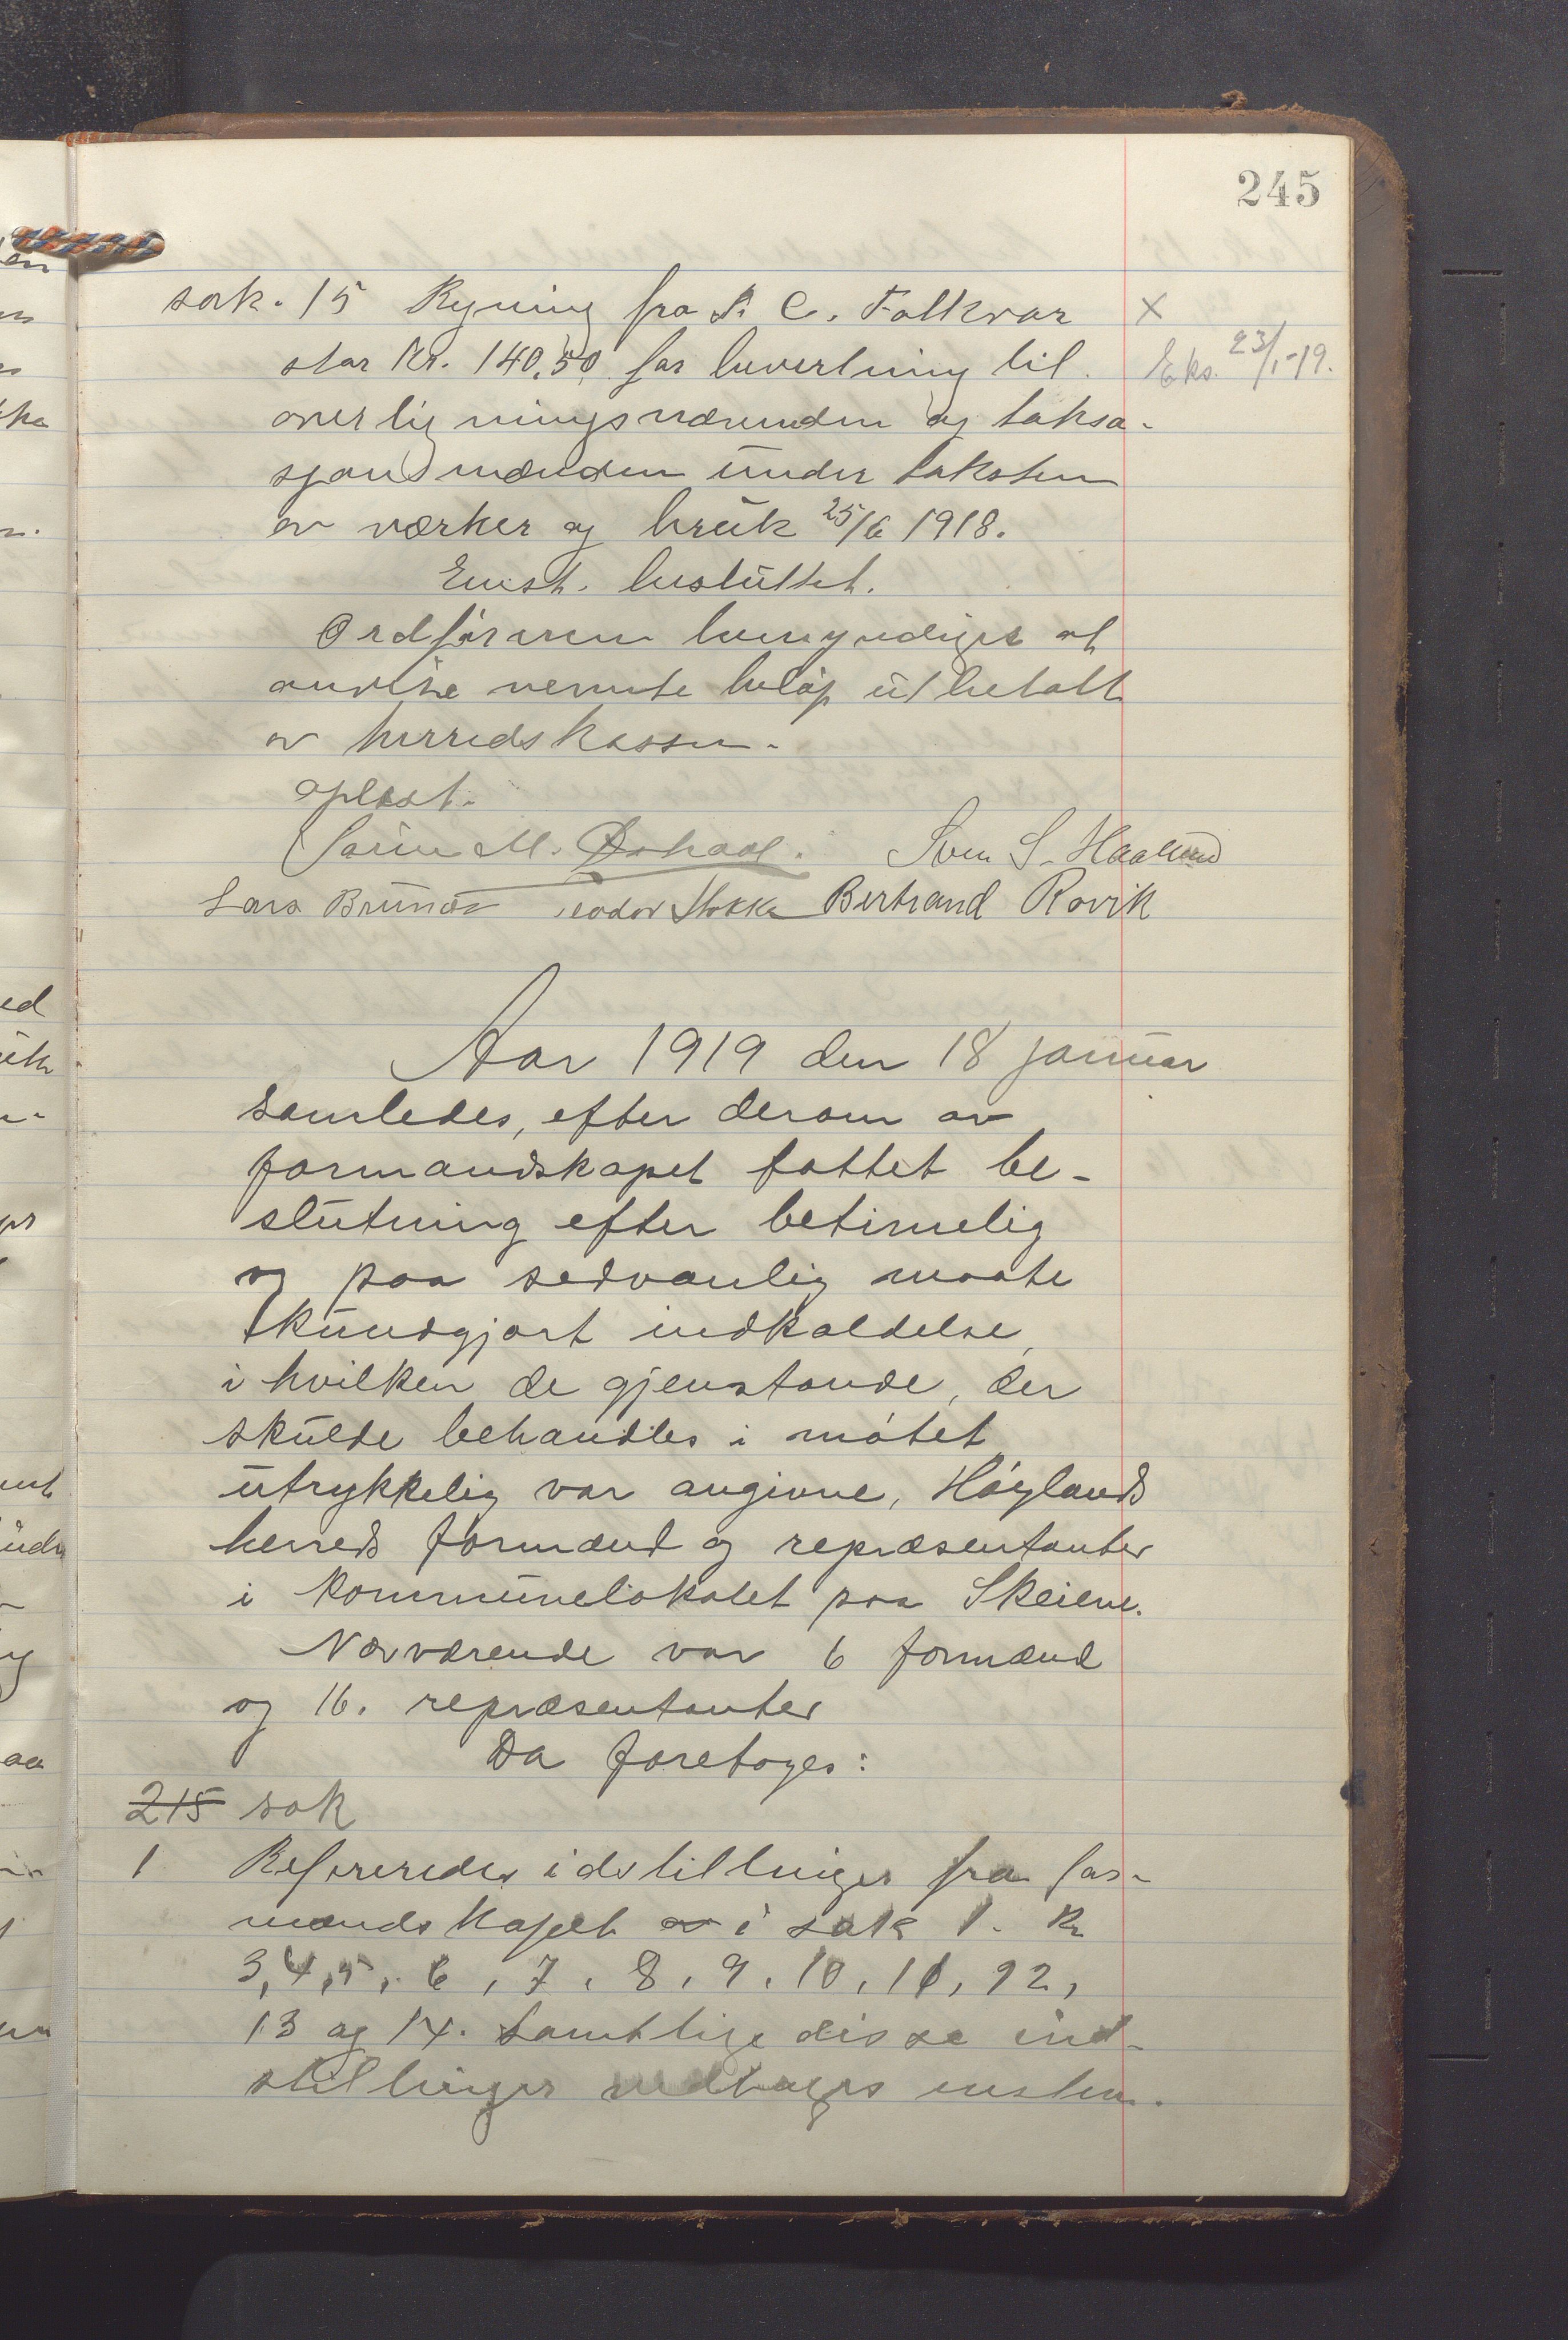 245
sak. 15 Regning fra P. C. Folkvar x
stor Kr. 140,50 for bevertning til Eks. 23/1-19.
overligningsnævnden og taksa-
sjonsmænden under taksten
av værker og bruk 25/6 1918.
Enst. besluttet.
Ordføreren bemyndiges at
anvise nevnte beløp utbetalt
av herredskassen.
oplæst.
M. Sven S. Haaland
Lars Brunes Teodor Stokke Bertrand Rovik
Aar 1919 den 18 januar
samledes, efter derom av
formandskapet fattet be-
slutning efter betimelig
og paa sedvanlig maate
kundgjort indkaldelse,
i hvilken de gjenstande, der
skulde behandles i møtet
utrykkelig var angivne, Høylands
herreds formænd og repræsentanter
i kommunelokalet paa Skeiene.
Nærværende var 6 formænd
og 16. repræsentanter
Da foretoges:
215 sak
1 Refereredes idstillinger fra for-
mandskapet av i sak 1. 2
3, 4, 5, 6, 7, 8, 9, 10, 11, 12,
13 og 14. Samtlige disse ind-
stillinger vedtoges enstem.